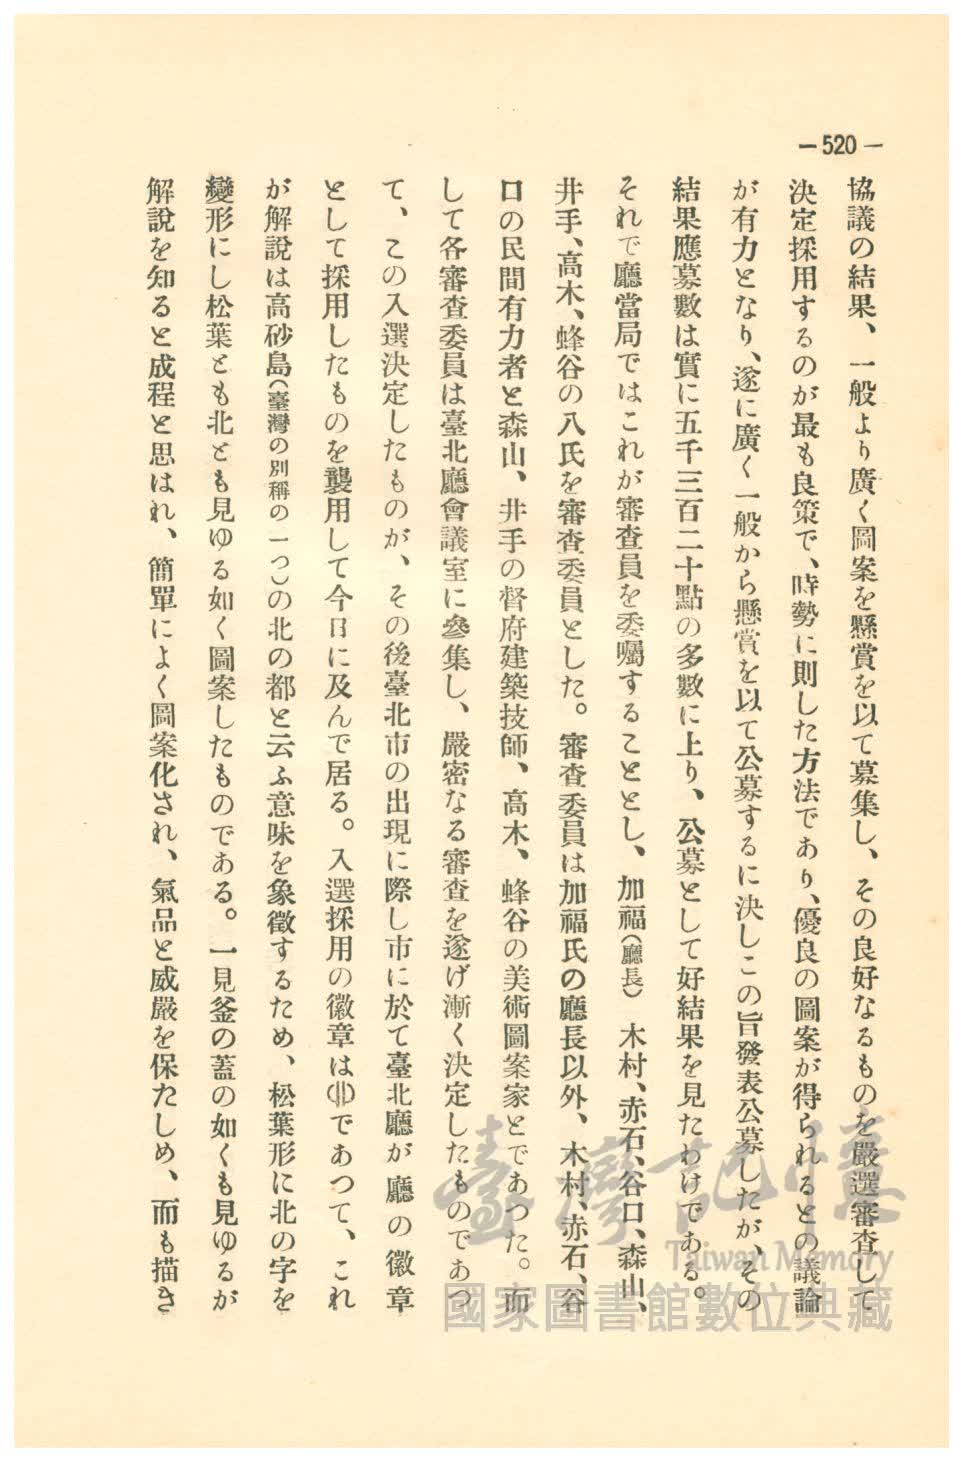 — 520 —
協議の結果、一般より廣く圖案を懸賞を以て募集し、その良好なるものを嚴選審査して
決定採用するのが最も良策で、時勢に則した方法であり、優良の圖案が得られるとの議論
が有力となり、遂に廣く一般から懸賞を以て公募するに決しこの旨發表公募したが、その
結果應募數は實に五千三百二十點の多數に上り、公募として好結果を見たわけである。
それで廳當局ではこれが審査員を委囑することとし、加福(廳長) 木村、赤石、谷口、森山、
井手、高木、蜂谷の八氏を審査委員とした。審査委員は加福氏の廳長以外、木村、赤石、谷
口の民間有力者と森山、井手の督府建築技師、高木、蜂谷の美術圖案家とであつた。而
して各審査委員は臺北廳會議室に參集し、嚴密なる審査を遂げ漸く決定したものであつ
て、この入選決定したものが、その後臺北市の出現に際し市に於て臺北廳が廳の徽章
として採用したものを襲用して今日に及んで居る。入選採用の徽章はであつて、これ
が解說は高砂島(臺灣の別稱の一つ)の北の都と云ふ意味を象徵するため、松葉形に北の字を
變形にし松葉とも北とも見ゆる如く圖案したものである。一見釜の蓋の如くも見ゆるが
解說を知ると成程と思はれ、簡單によく圖案化され、氣品と威嚴を保たしめ、而も描き
臺灣記憶
Taiwan Memory
國家圖書館數位典藏